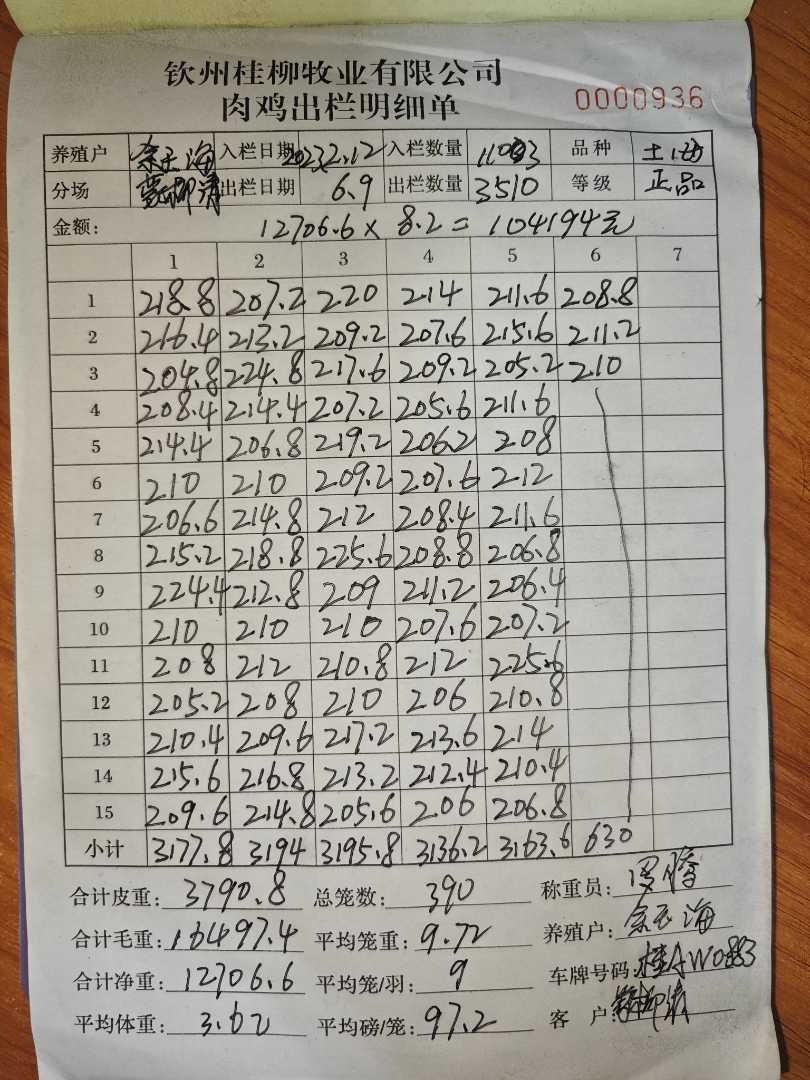 钦州桂柳牧业有限公司
肉鸡出栏明细单 0000936
养殖户 余玉海 入栏日期 2023.2.12 入栏数量 11003 品种 土
分场 出栏日期 6.9 出栏数量 3510 等级 正品
金额: 12706.6 × 8.2 = 104194元
1 2 3 4 5 6 7
1 218.8 207.2 220 214 211.6 208.8
2 216.4 213.2 209.2 207.6 215.6 211.2
3 204.8 224.8 217.6 209.2 205.2 210
4 208.4 214.4 207.2 205.6 211.6
5 214.4 206.8 219.2 206.2 208
6 210 210 209.2 207.6 212
7 206.6 214.8 212 208.4 211.6
8 215.2 218.8 225.6 208.8 206.8
9 224.4 212.8 209 211.2 206.4
10 210 210 210 207.6 207.2
11 208 212 210.8 212 225.6
12 205.2 208 210 206 210.8
13 210.4 209.6 217.2 213.6 214
14 215.6 216.8 213.2 212.4 210.4
15 209.6 214.8 205.6 206 206.8
小计 3177.8 3194 3195.8 3136.2 3163.6 630
合计皮重: 3790.8 总笼数: 390 称重员:
合计毛重: 16497.4 平均笼重: 9.72 养殖户: 余玉海
合计净重: 12706.6 平均笼/羽: 9 车牌号码: 桂AW0883
平均体重: 3.62 平均磅/笼: 97.2 客户: